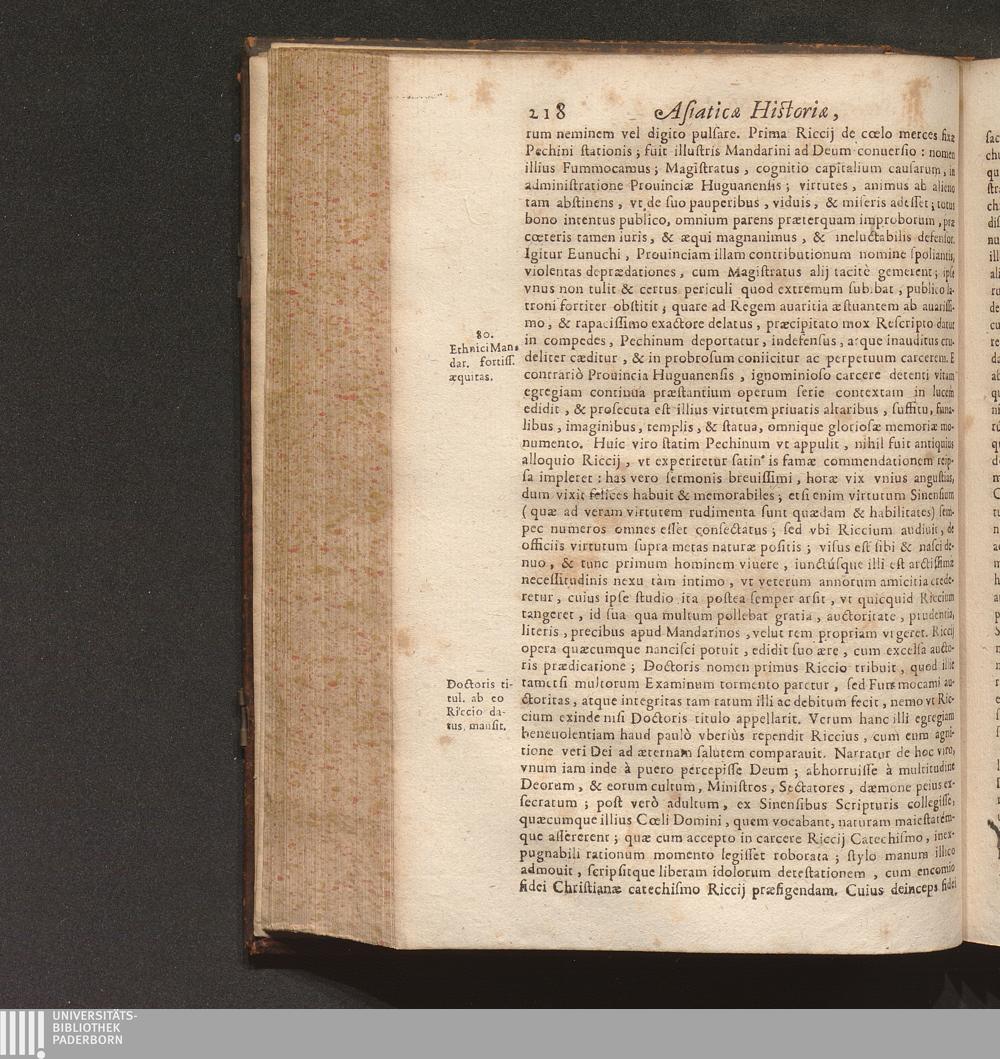 218 Aſiaticæ Hiſtoriæ,
rum neminem vel digito pulſare. Prima Riccij de cœlo merces fixæ
Pechini ſtationis; fuit illuſtris Mandarini ad Deum conuerſio: nomen
illius Fummocamus; Magiſtratus, cognitio capitalium cauſarum, in
adminiſtratione Prouinciæ Huguanenſis; virtutes, animus ab alieno
tam abſtinens, vt de ſuo pauperibus, viduis, & miſeris adeſſet; totus
bono intentus publico, omnium parens præterquam improborum, præ
cœteris tamen iuris, & æqui magnanimus, & ineluctabilis defenſor.
Igitur Eunuchi, Prouinciam illam contributionum nomine ſpoliantis,
violentas deprædationes, cum Magiſtratus alij tacitè gemerent; ipſe
vnus non tulit & certus periculi quod extremum ſubibat, publico la-
troni fortiter obſtitit; quare ad Regem auaritia æſtuantem ab auariſſi-
mo, & rapaciſſimo exactore delatus, præcipitato mox Reſcripto datur
in compedes, Pechinum deportatur, indefenſus, atque inauditus cru-
deliter cæditur, & in probroſum coniicitur ac perpetuum carcerem. E
contrariò Prouincia Huguanenſis, ignominioſo carcere detenti vitam
egregiam continua præſtantium operum ſerie contextam in lucem
edidit, & proſecuta eſt illius virtutem priuatis altaribus, ſuffitu, funa-
libus, imaginibus, templis, & ſtatua, omnique glorioſæ memoriæ mo-
numento. Huic viro ſtatim Pechinum vt appulit, nihil fuit antiquius
alloquio Riccij, vt experiretur ſatin' is famæ commendationem reip-
ſa impleret: has vero ſermonis breuiſſimi, horæ vix vnius anguſtias,
dum vixit felices habuit & memorabiles; etſi enim virtutum Sinenſium
(quæ ad veram virtutem rudimenta ſunt quædam & habilitates) ſem-
pec numeros omnes eſſet conſectatus; ſed vbi Riccium audiuit, de
officiis virtutum ſupra metas naturæ poſitis; viſus eſt ſibi & naſci de-
nuo, & tunc primum hominem viuere, iunctúſque illi eſt arctiſſimæ
neceſſitudinis nexu tàm intimo, vt veterum annorum amicitia crede-
retur, cuius ipſe ſtudio ita poſtea ſemper arſit, vt quicquid Riccium
tangeret, id ſua qua multum pollebat gratia, auctoritate, prudentia,
literis, precibus apud Mandarinos, velut rem propriam vrgeret. Riccij
opera quæcumque nanciſci potuit, edidit ſuo ære, cum excelſa aucto-
ris prædicatione; Doctoris nomen primus Riccio tribuit, quod illic
tametſi multorum Examinum tormento paretur, ſed Fummocami au-
ctoritas, atque integritas tam ratum illi ac debitum fecit, nemo vt Ric-
cium exinde niſi Doctoris titulo appellarit. Verum hanc illi egregiam
beneuolentiam haud paulò vberiùs rependit Riccius, cum eum agni-
tione veri Dei ad æternam ſalutem comparauit. Narratur de hoc viro,
vnum iam inde à puero percepiſſe Deum; abhorruiſſe à multitudine
Deorum, & eorum cultum, Miniſtros, Sectatores, dæmone peius ex-
ſecratum; poſt verò adultum, ex Sinenſibus Scripturis collegiſſe,
quæcumque illius Cœli Domini, quem vocabant, naturam maieſtatém-
que aſſererent; quæ cum accepto in carcere Riccij Catechiſmo, inex-
pugnabili rationum momento legiſſet roborata; ſtylo manum illico
admouit, ſcripſitque liberam idolorum deteſtationem, cum encomio
fidei Chriſtianæ catechiſmo Riccij præfigendam. Cuius deinceps fidei
80.
Ethnici Man-
dar. fortiſſ.
æquitas.
Doctoris ti-
tul. ab eo
Riccio da-
tus, manſit.
UNIVERSITÄTS-
BIBLIOTHEK
PADERBORN